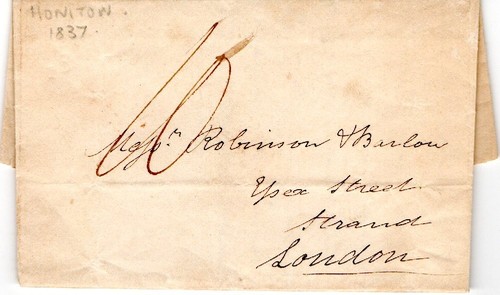 HONITON.
1837.
10
Messrs. Robinson & Barlow
Essex Street
Strand
London